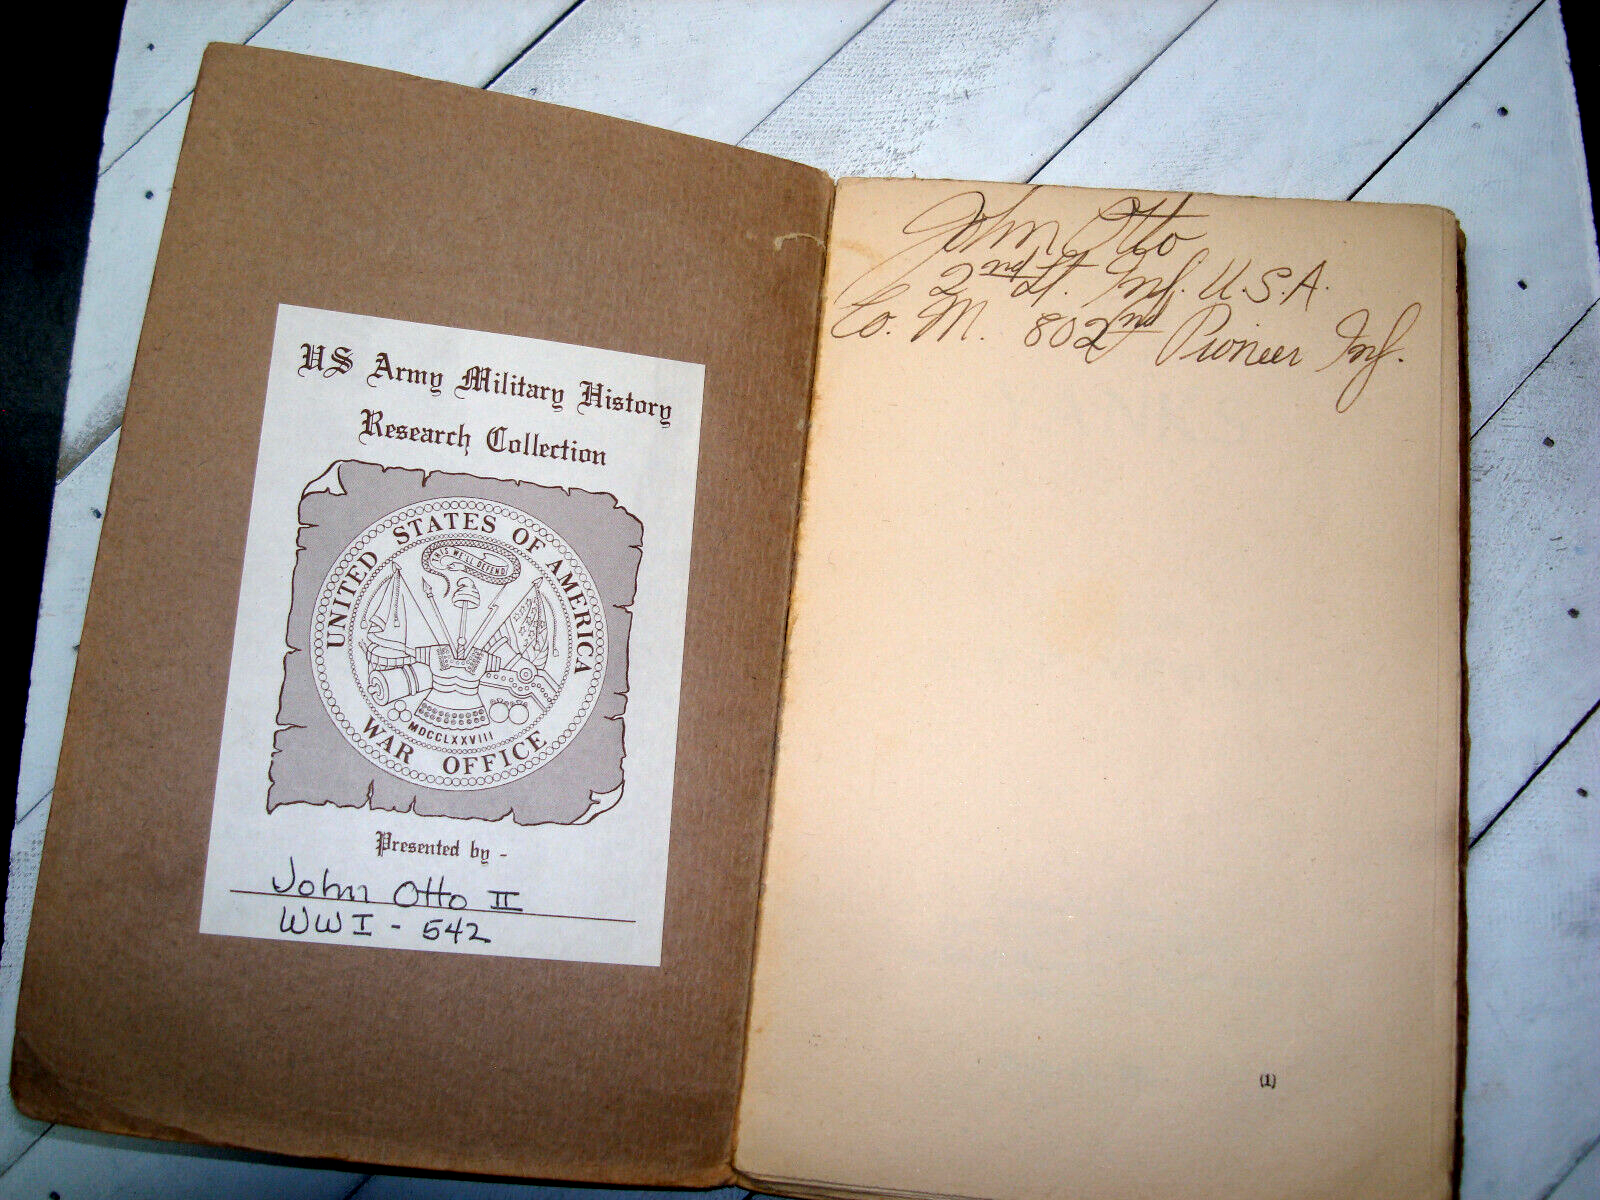 US Army Military History
Research Collection
UNITED STATES OF AMERICA
THIS WE'LL DEFEND
MDCCLXXVIII
WAR OFFICE
Presented by -
John Otto II
WWI - 542
John Otto
2nd Lt. Inf. U.S.A.
Co. M. 802nd Pioneer Inf.
(1)